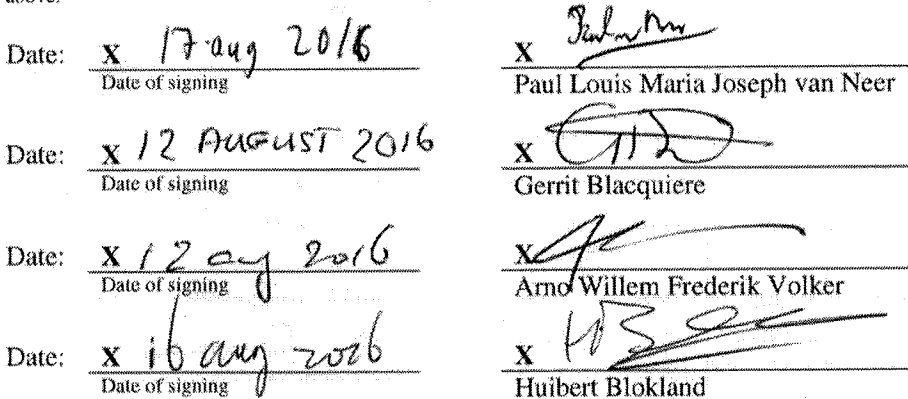 above.
Date: X 17 aug 2016 X
Date of signing Paul Louis Maria Joseph van Neer
Date: X 12 AUGUST 2016 X
Date of signing Gerrit Blacquiere
Date: X 12 aug 2016 X
Date of signing Arno Willem Frederik Volker
Date: X 16 aug 2016 X
Date of signing Huibert Blokland